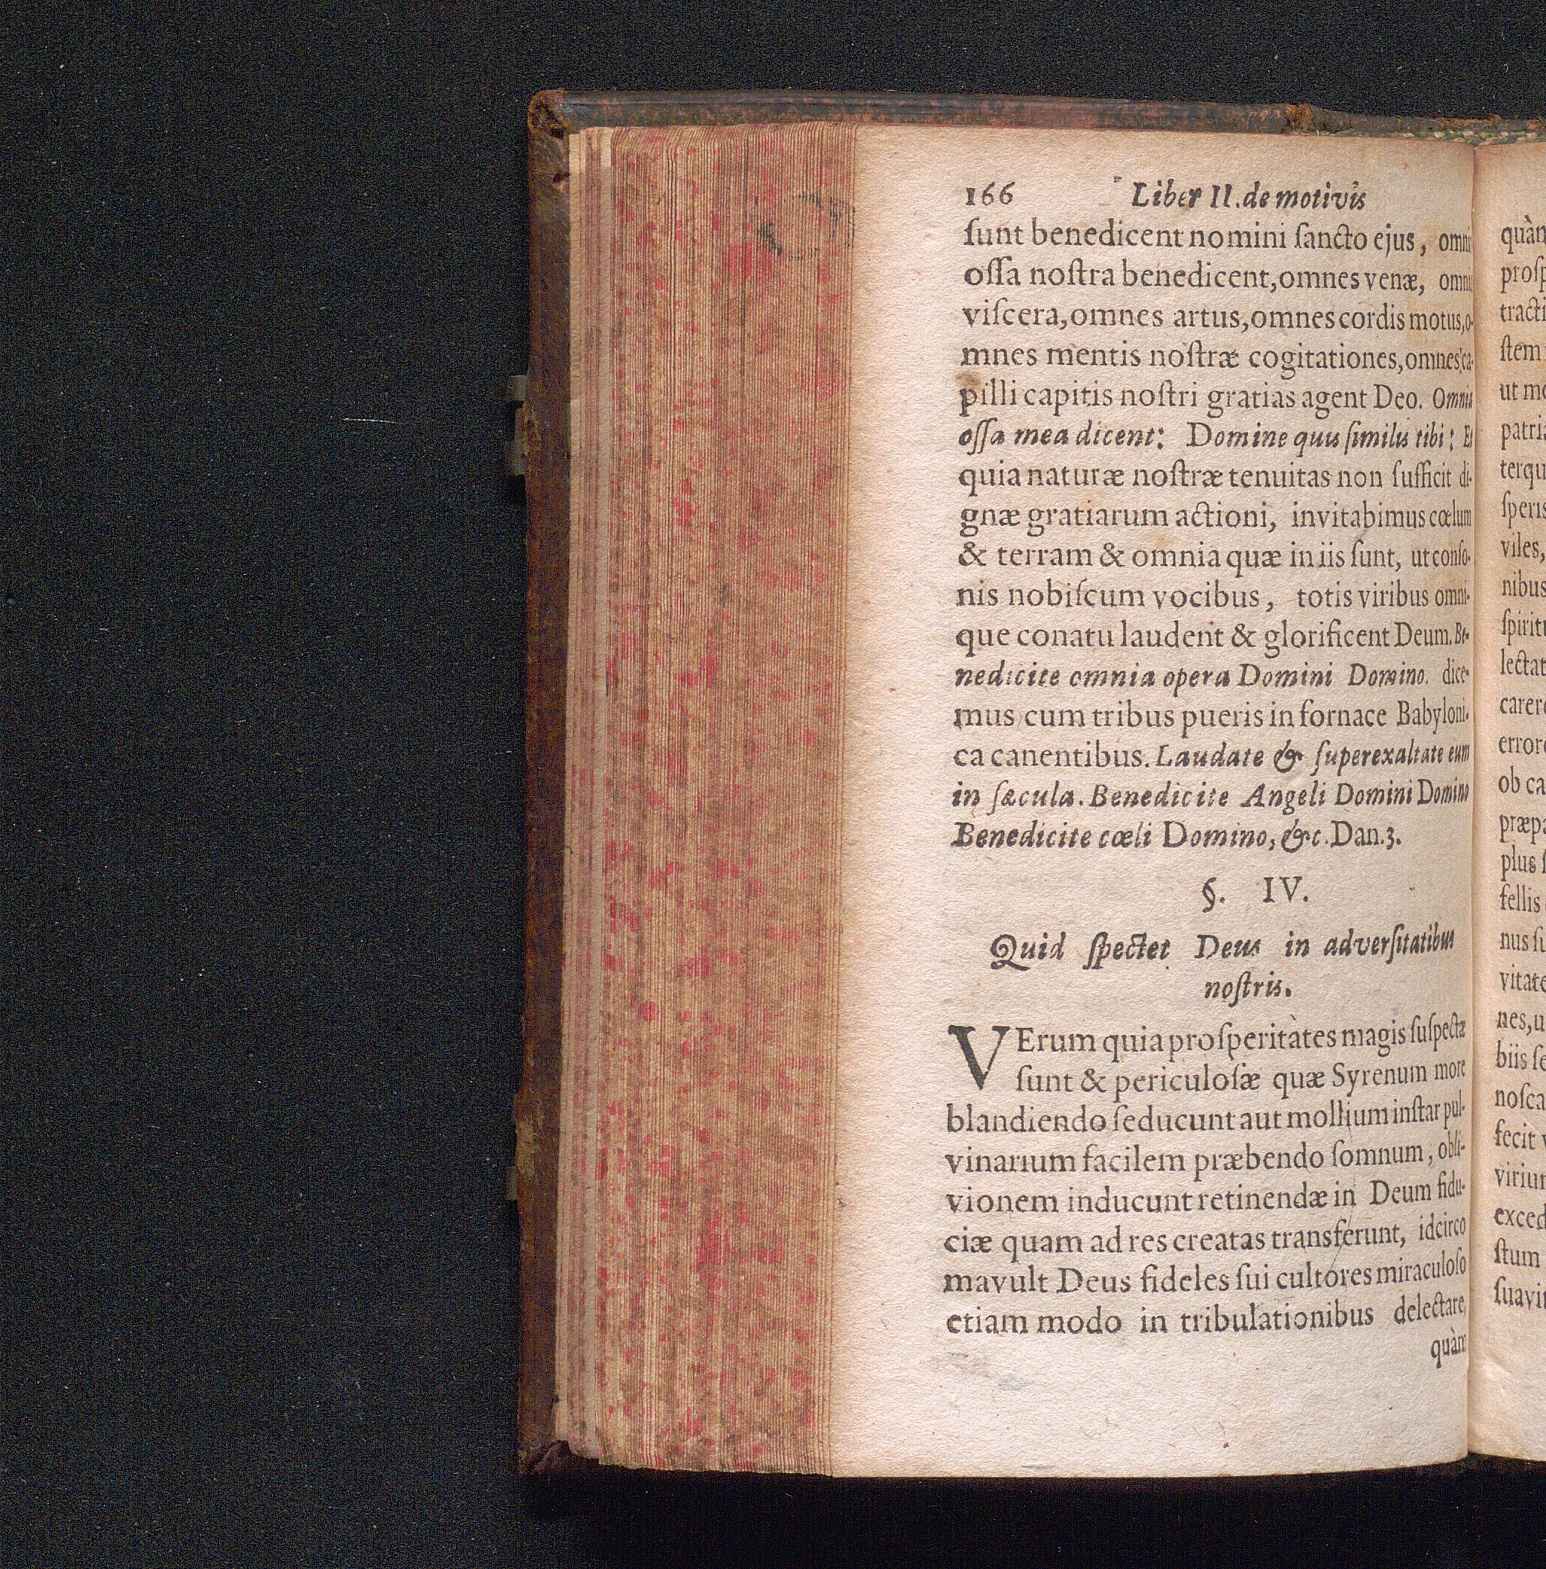 166 Liber II. de motivis
sunt benedicent nomini sancto ejus, omni
ossa nostra benedicent, omnes venæ, omni
viscera, omnes artus, omnes cordis motus, o-
mnes mentis nostræ cogitationes, omnes ca-
pilli capitis nostri gratias agent Deo. Omnia
ossa mea dicent: Domine quis similis tibi: Et
quia naturæ nostræ tenuitas non sufficit di-
gnæ gratiarum actioni, invitabimus cœlum
& terram & omnia quæ in iis sunt, ut conso-
nis nobiscum vocibus, totis viribus omni-
que conatu laudent & glorificent Deum. Be-
nedicite omnia opera Domini Domino. dice-
mus cum tribus pueris in fornace Babyloni-
ca canentibus. Laudate & superexaltate eum
in sæcula. Benedicite Angeli Domini Domino
Benedicite cœli Domino, &c. Dan. 3.
§. IV.
Quid spectet Deus in adversitatibus
nostris.
VErum quia prosperitates magis suspectæ
sunt & periculosæ quæ Syrenum more
blandiendo seducunt aut mollium instar pul-
vinarium facilem præbendo somnum, obli-
vionem inducunt retinendæ in Deum fidu-
ciæ quam ad res creatas transferunt, idcirco
mavult Deus fideles sui cultores miraculoso
etiam modo in tribulationibus delectare,
quàm
quàm
prosp
tracti
stem
ut mo
patria
terqu
speris
viles,
nibus
spiritu
lectat
carere
errore
ob ca
præpa
plus s
fellis
nus su
vitate
nes, u
biis se
nosca
fecit v
virium
exced
stum
suavit